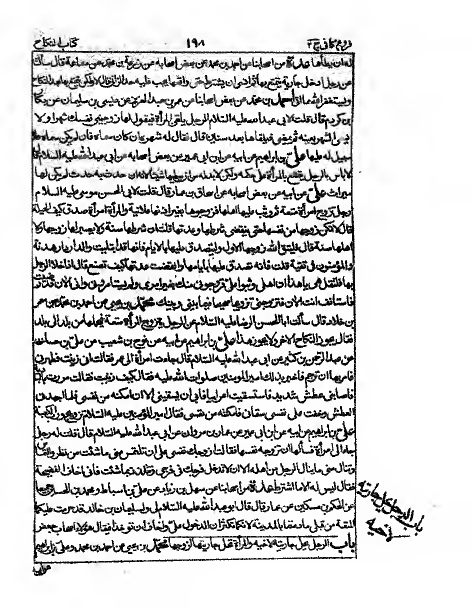 فروع كافي ج ٢ ١٩٨ كتاب النكاح
له ان يطأها عدة من اصحابنا عن احمد بن محمد عن بعض اصحابه عن محمد بن قال سألت
عن رجل ادخل جارية يتمتع بها ثم
ويستغفر الله احمد بن محمد عن بعض اصحابنا عن عمر بن عبد العزيز عن عيسى بن سليمان عن بكار
بن كردم قال قلت لابي عبد الله عليه السلام الرجل يلقى المرأة فيقول لها زوجيني نفسك شهرا ولا
يسمي الشهر بعينه ثم يمضي فيلقاها بعد سنين قال فقال له شهره ان كان سماه فان لم يكن سماه فلا
سبيل له عليها علي بن ابراهيم عن ابيه عن ابن ابي عمير عن بعض اصحابه عن ابي عبد الله عليه السلام قال
لا بأس بالرجل يتمتع بالمرأة على حكمه ولكن لا بد له من ان يعطيها شيئا لانه ان حدث به حدث لم يكن لها
ميراث علي عن ابيه عن بعض اصحابه عن اسحاق بن عمار قال قلت لابي الحسن موسى عليه السلام
رجل تزوج امرأة متعة ثم وثب عليها اهلها فزوجوها بغير اذنها علانية والمرأة امرأة صدق كيف الحيلة
قال لا تمكن زوجها من نفسها حتى ينقضي شرطها وعدتها قلت ان شرطها سنة ولا يصبر لها زوجها ولا
اهلها سنة قال فليتق الله زوجها الاول وليتصدق عليها بالايام فانها قد ابتليت والدار دار هدنة
والمؤمنون في تقية قلت فانه تصدق عليها بايامها وانقضت عدتها كيف تصنع قال اذا خلا الرجل
بها فلتقل هي يا هذا ان اهلي وثبوا علي فزوجوني منك بغير امري ولم يستأمروني واني الآن قد رضيت
فاستأنف انت الآن فتزوجني تزويجا صحيحا فيما بيني وبينك محمد بن يحيى عن احمد بن محمد عن معمر
بن خلاد قال سألت ابا الحسن الرضا عليه السلام عن الرجل يتزوج المرأة متعة فيحملها من بلد الى بلد
فقال يجوز النكاح الآخر ولا يجوز هذا علي بن ابراهيم عن ابيه عن نوح بن شعيب عن علي بن حسان
عن عبد الرحمن بن كثير عن ابي عبد الله عليه السلام قال جاءت امرأة الى عمر فقالت اني زنيت فطهرني
فامر بها ان ترجم فاخبر بذلك امير المؤمنين صلوات الله عليه فقال كيف زنيت فقالت مررت بالبادية
فاصابني عطش شديد فاستسقيت اعرابيا فابى ان يسقيني الا ان امكنه من نفسي فلما اجهدني
العطش وخفت على نفسي سقاني فامكنته من نفسي فقال امير المؤمنين عليه السلام تزويج ورب الكعبة
علي بن ابراهيم عن ابيه عن ابن ابي عمير عن عمار بن مروان عن ابي عبد الله عليه السلام قال قلت له رجل
جاء الى امرأة فسألها ان تزوجه نفسها فقالت ازوجك نفسي على ان تلتمس مني ما شئت من نظر والتماس
وتنال مني ما ينال الرجل من اهله الا ان لا تدخل فرجك في فرجي وتتلذذ بما شئت فاني اخاف الفضيحة
فقال ليس له الا ما اشترط عدة من اصحابنا عن سهل بن زياد عن علي بن اسباط ومحمد بن الحسين جميعا
عن الحكم بن مسكين عن عمار قال قال ابو عبد الله عليه السلام لي ولسليمان بن خالد قد حرمت عليكما
المتعة من قبلي ما دمتما بالمدينة لانكما تكثران الدخول علي واخاف ان تؤخذا فيقال هؤلاء اصحاب جعفر
باب الرجل يحل جاريته لاخيه والمرأة تحل جاريتها لزوجها محمد بن يحيى عن احمد بن محمد وعلي بن ابراهيم
باب الرجل يحل جاريته
لاخيه